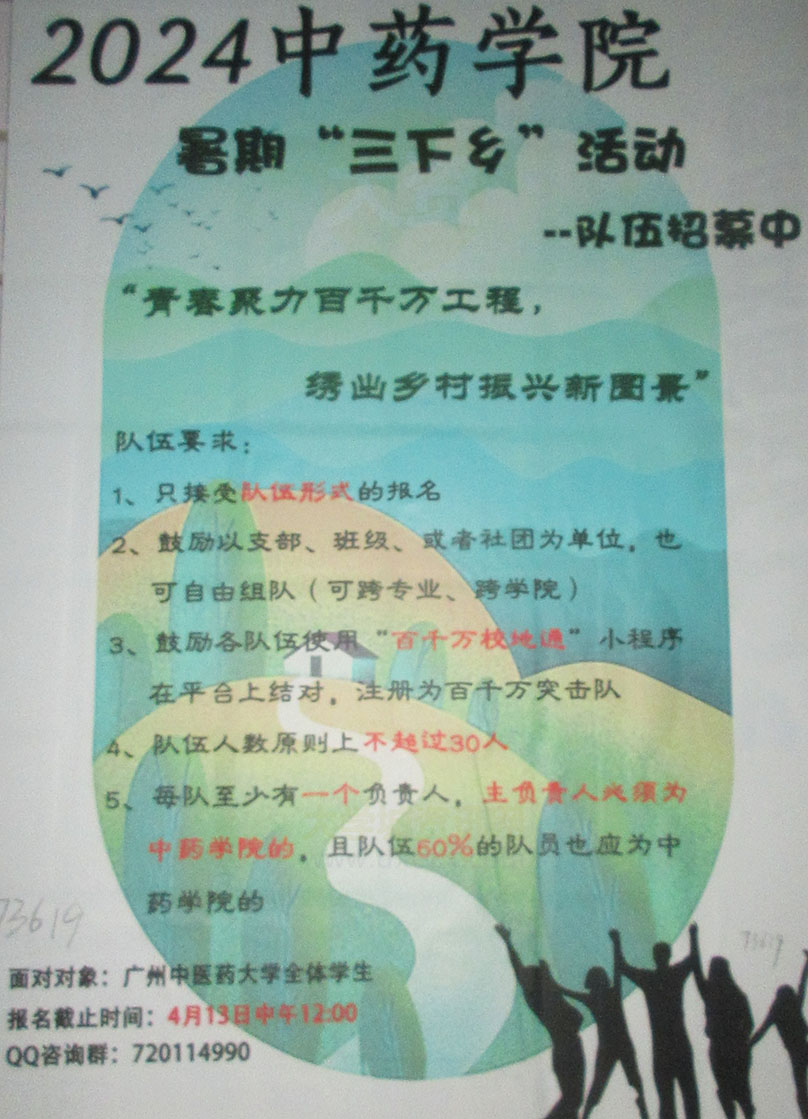 2024中药学院
暑期“三下乡”活动
--队伍招募中
“青春聚力百千万工程，
绣出乡村振兴新图景”
队伍要求：
1、只接受队伍形式的报名
2、鼓励以支部、班级、或者社团为单位，也
可自由组队（可跨专业、跨学院）
3、鼓励各队伍使用“百千万校地通”小程序
在平台上结对，注册为百千万突击队
4、队伍人数原则上不超过30人
5、每队至少有一个负责人，主负责人必须为
中药学院的，且队伍60%的队员也应为中
药学院的
73619
73619
面对对象：广州中医药大学全体学生
报名截止时间：4月13日中午12:00
QQ咨询群：720114990